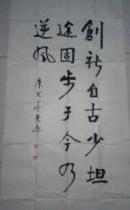 創新自古少坦
途固步于今乃
逆風